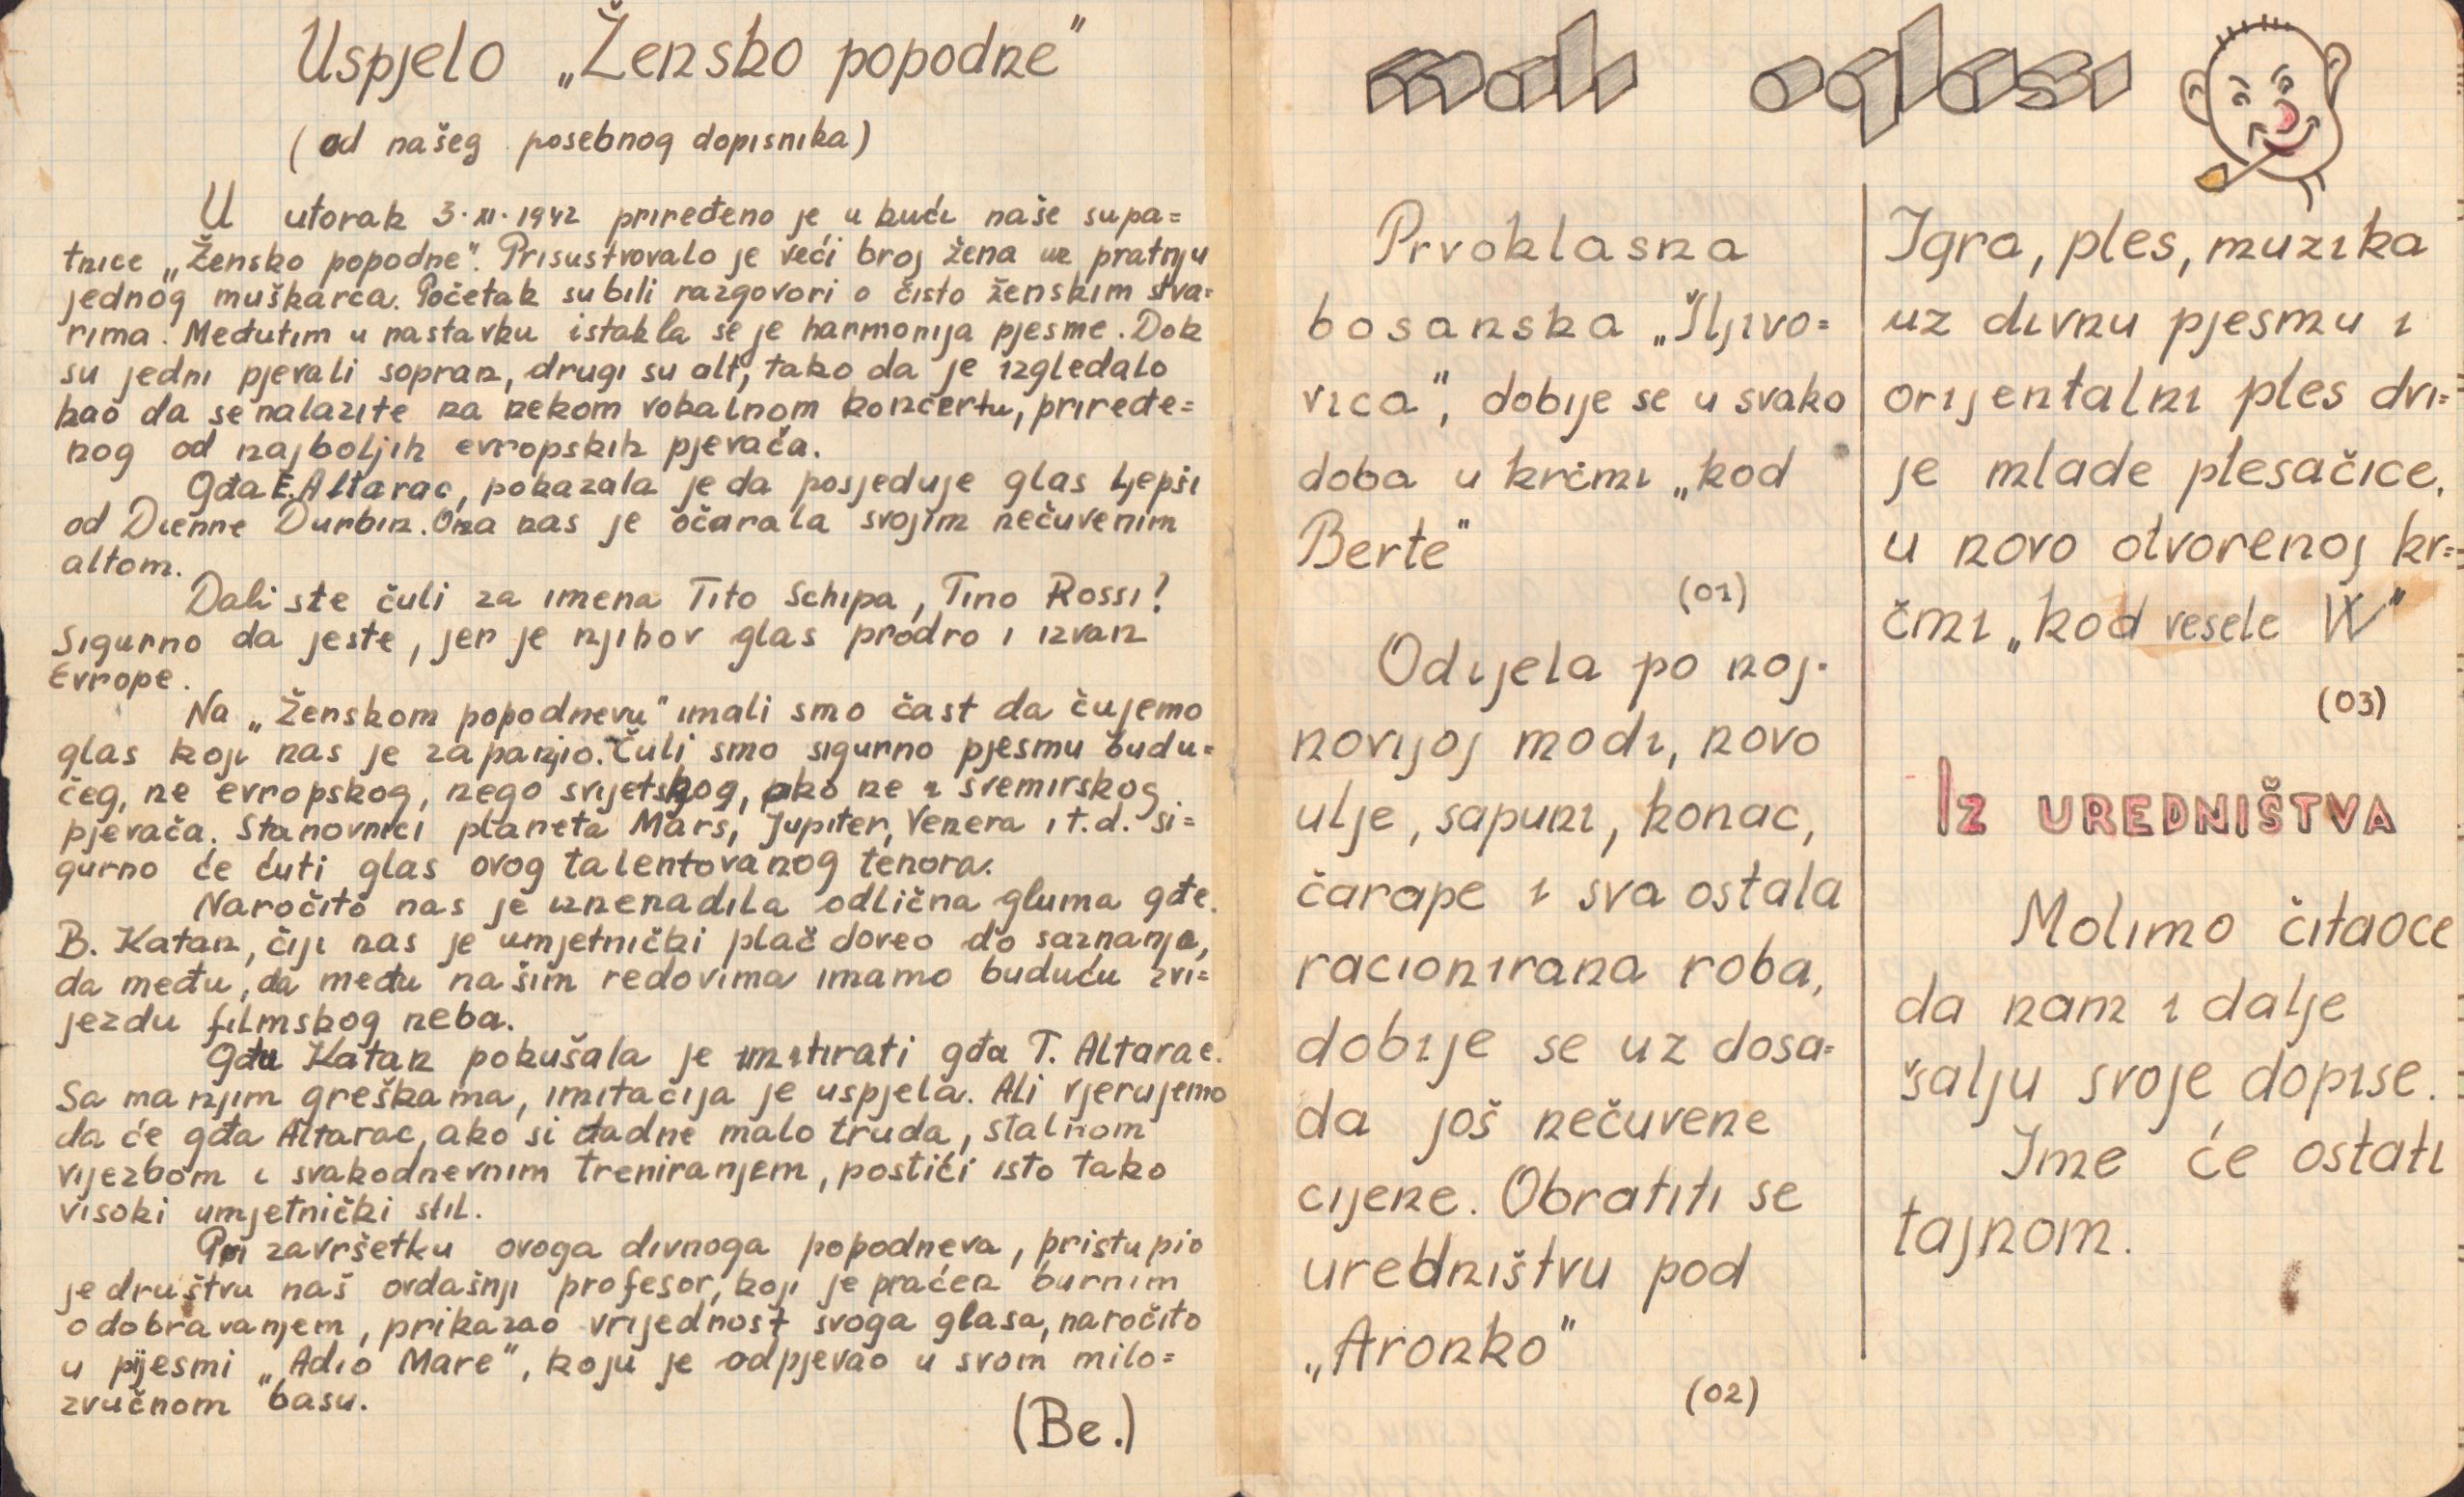 Uspjelo „Žensko popodne"
(od našeg posebnog dopisnika)
U utorak 3.XI.1942 priređeno je u kući naše supa=
tnice „Žensko popodne". Prisustvovalo je veći broj žena uz pratnju
jednog muškarca. Početak su bili razgovori o čisto ženskim stva=
rima. Međutim u nastavku istakla se je harmonija pjesme. Dok
su jedni pjevali sopran, drugi su alt, tako da je izgledalo
kao da se nalazite na nekom vokalnom koncertu, priređe=
nog od najboljih evropskih pjevača.
Gđa E. Altarac, pokazala je da posjeduje glas ljepši
od Dienne Durbin. Ona nas je očarala svojim nečuvenim
altom.
Dali ste čuli za imena Tito Schipa, Tino Rossi?
Sigurno da jeste, jer je njihov glas prodro i izvan
Evrope.
Na „Ženskom popodnevu" imali smo čast da čujemo
glas koji nas je zapanjio. Čuli smo sigurno pjesmu budu=
ćeg, ne evropskog, nego svijetskog, ako ne i svemirskog
pjevača. Stanovnici planeta Mars, Jupiter, Venera i t.d. si=
gurno će ćuti glas ovog talentovanog tenora.
Naročito nas je iznenadila odlična gluma gđe.
B. Katan, čiji nas je umjetnički plač doveo do saznanja,
da među, da među našim redovima imamo buduću zvi=
jezdu filmskog neba.
Gđu Katan pokušala je imitirati gđa T. Altarac.
Sa manjim greškama, imitacija je uspjela. Ali vjerujemo
da će gđa Altarac, ako si dadne malo truda, stalnom
vijezbom i svakodnevnim treniranjem, postići isto tako
visoki umjetnički stil.
Pri završetku ovoga divnoga popodneva, pristupio
je društvu naš ovdašnji profesor, koji je praćen burnim
odobravanjem, prikazao vrijednost svoga glasa, naročito
u pijesmi „Adio Mare", koju je odpjevao u svom milo=
zvučnom basu.
(Be.)
mali oglasi
Prvoklasna
bosanska „Šljivo=
vica", dobije se u svako
doba u krčmi „kod
Berte"
(01)
Odijela po naj-
novijoj modi, novo
ulje, sapuni, konac,
čarape i sva ostala
racionirana roba,
dobije se uz dosa=
da još nečuvene
cijene. Obratiti se
uredništvu pod
„Aronko"
(02)
Igra, ples, muzika
uz divnu pjesmu i
orijentalni ples dvi=
je mlade plesačice,
u novo otvorenoj kr=
čmi „kod vesele W"
(03)
Iz UREDNIŠTVA
Molimo čitaoce
da nam i dalje
šalju svoje dopise.
Ime će ostati
tajnom.